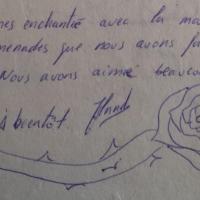 mes enchanté avec la ma
menades que nous avons fa
Nous avons aimé beaucou
à bientôt.